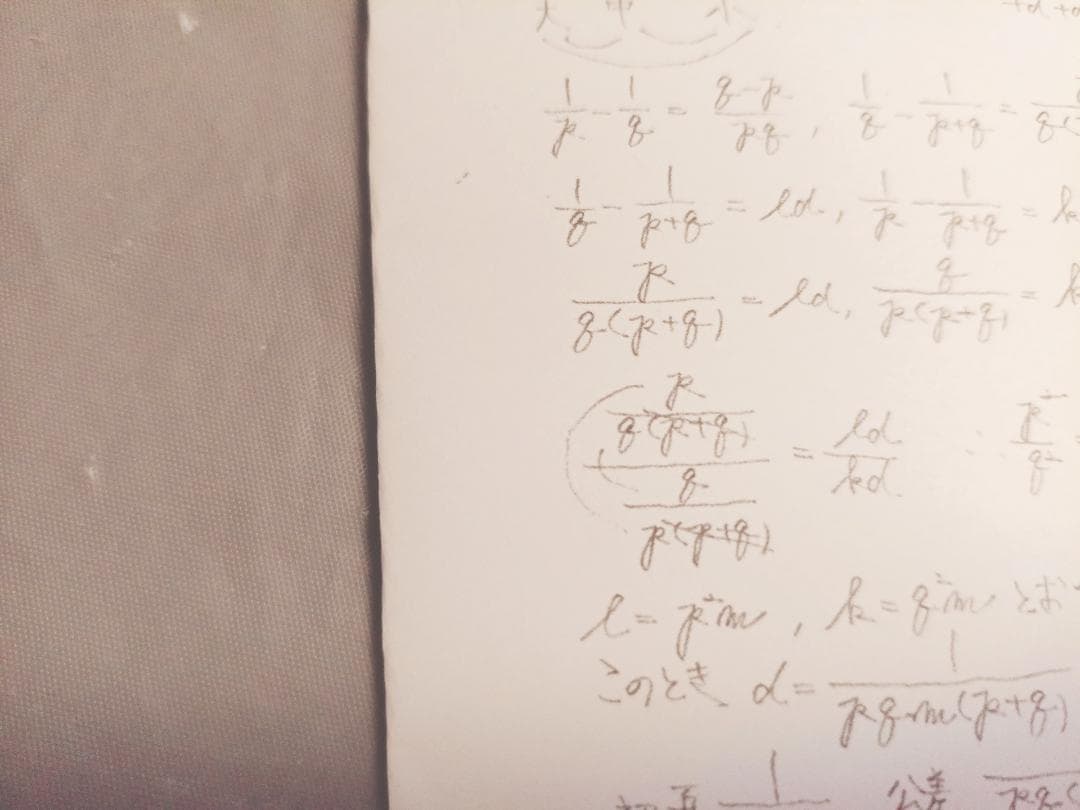 大 中 小 +d+d
1/p - 1/q = q-p/pq , 1/q - 1/(p+q) =
1/q - 1/(p+q) = ld , 1/p - 1/(p+q) = k
p/q(p+q) = ld , q/p(p+q) = k
(p/q(p+q))/(q/p(p+q)) = ld/kd ∴ p²/q² =
l = p²m , k = q²m とお
このとき d = 1/pqm(p+q)
初項 1 公差